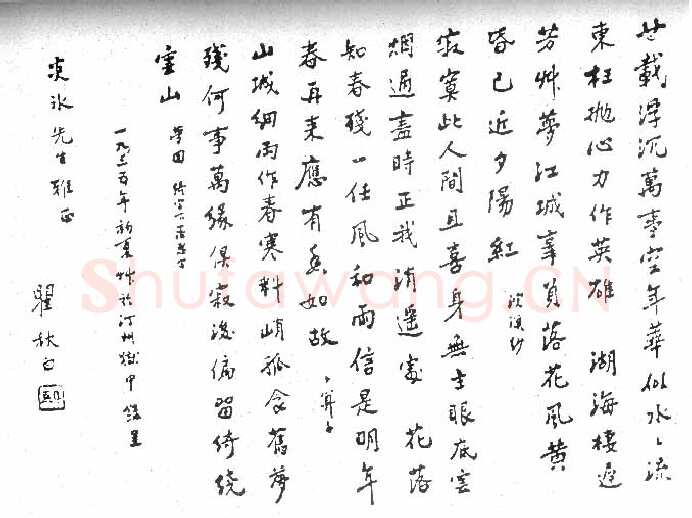 廿載浮沉萬事空年華似水々流
東枉抛心力作英雄　湖海棲遲
芳艸夢江城辜負落花風黄
昏已近夕陽紅　浣溪紗
寂寞此人間且喜身無主眼底雲
烟過盡時正我逍遥處　花落
知春殘一任風和雨信是明年
春再来應有香如故　卜算子
山城細雨作春寒料峭孤衾舊夢
殘何事萬緣俱寂後偏留綺繞
雲山　夢回
一九三五年初夏艸於汀州獄中錄呈
先生雅正
瞿秋白
Shufawang.CN